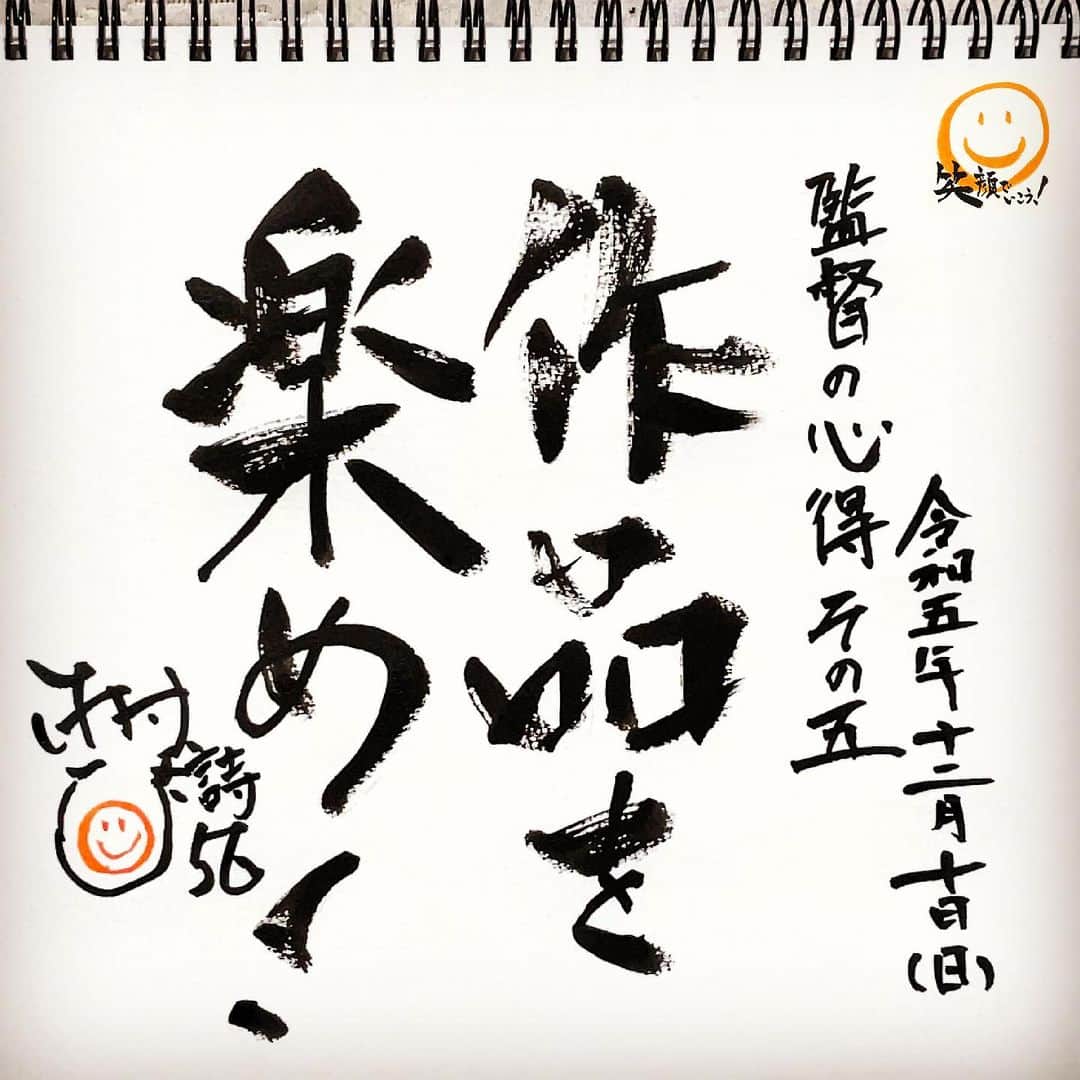 笑顔でいこう!
令和五年十二月十日(日)
監督の心得その五
作品を
楽め!
村
詩
56